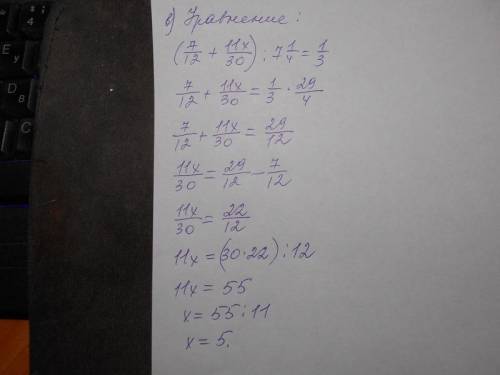 в) Уравнение:
(7/12 + 11x/30) : 7 1/4 = 1/3
7/12 + 11x/30 = 1/3 · 29/4
7/12 + 11x/30 = 29/12
11x/30 = 29/12 - 7/12
11x/30 = 22/12
11x = (30·22) : 12
11x = 55
x = 55 : 11
x = 5.